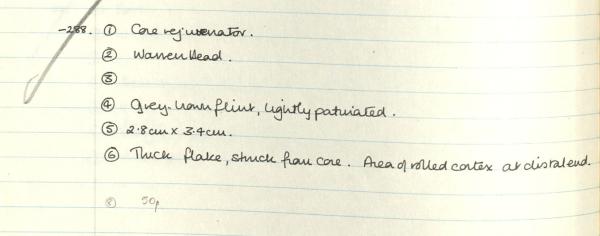 -288. ① Core rejuvenator.
② Warren Head.
③
④ Grey-brown flint, lightly patinated.
⑤ 2.8cm x 3.4cm.
⑥ Thick flake, struck from core. Area of rolled cortex at distal end.
⑧ 50p